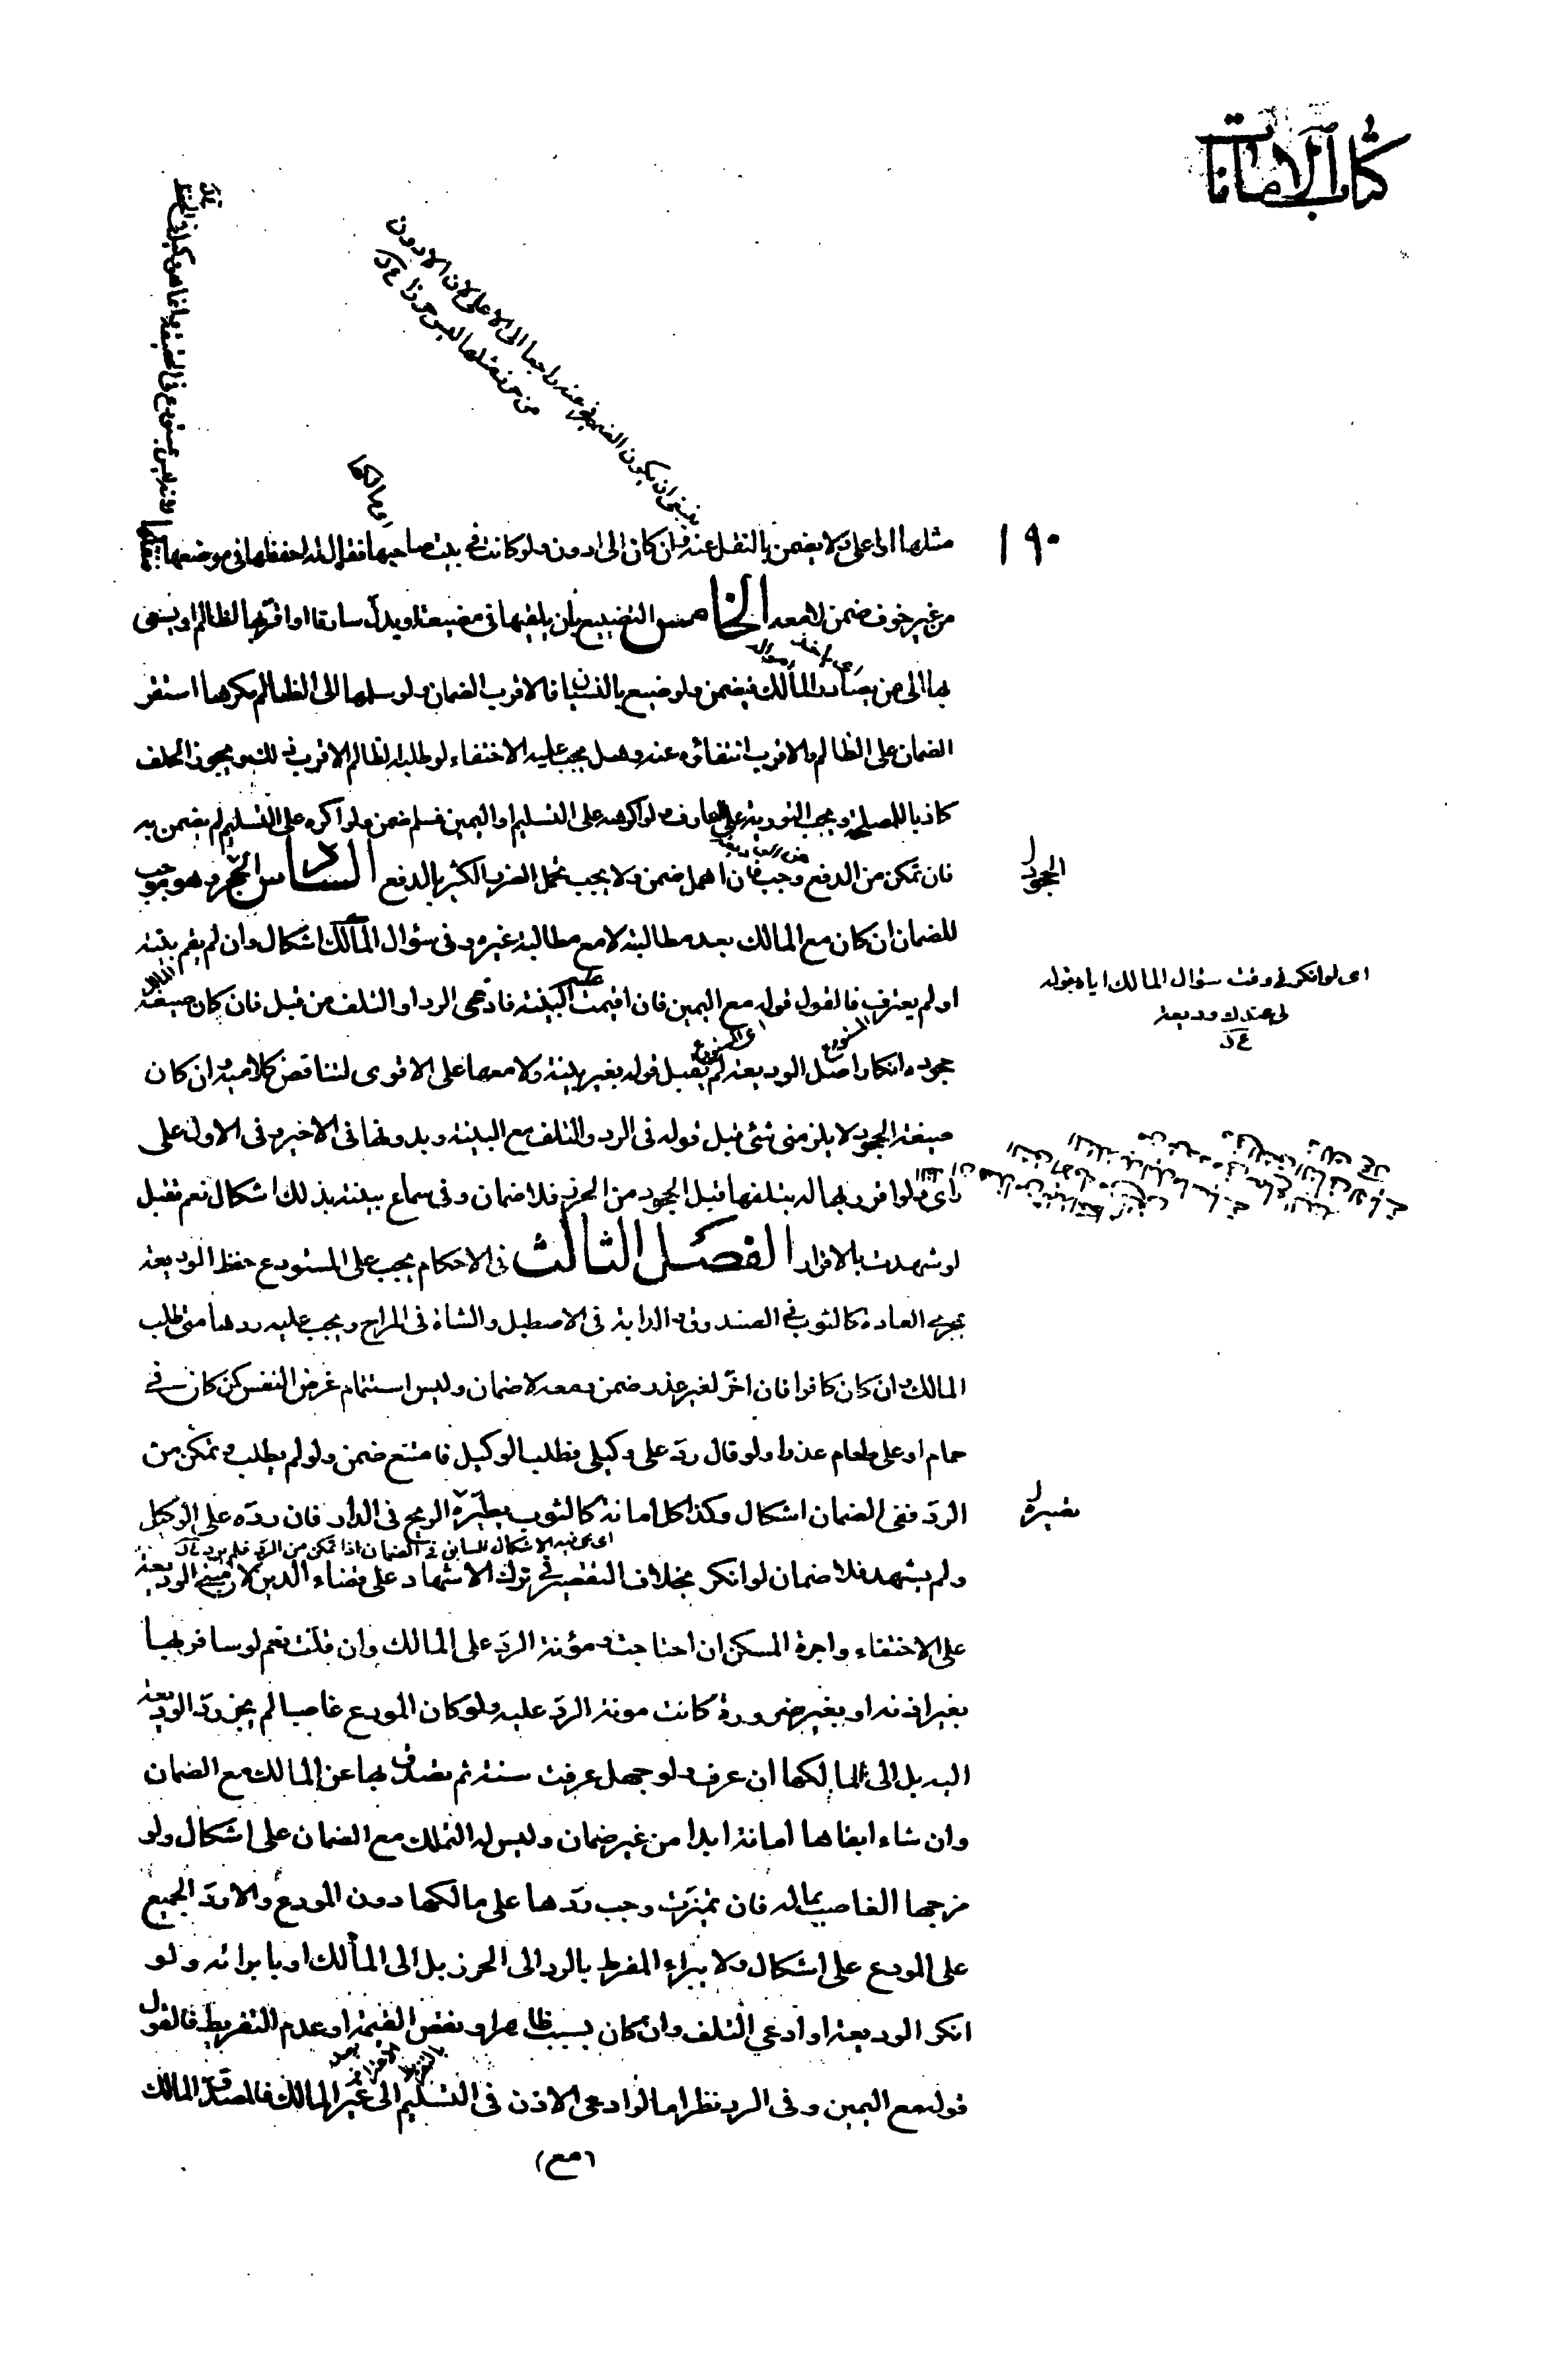 كتاب الامانات
١٩٠
مثلها او اعلى ولا يضمن بالنقل عنه وان كان الى ادون ولو كانت في بيت صاحبها فقال له احفظها في موضعها فنقلها
من غير خوف ضمن لا معه الخامس التضييع بأن يلقيها في مضيعة او يدل سارقا او اقر بها لظالم او يسعى
بها الى من يصادر المالك فيضمن ولو ضيع بالنسيان فالاقرب الضمان ولو سلمها الى الظالم مكرها استقر
الضمان على الظالم والاقرب انتفاؤه عنه وهل يجب عليه الاختفاء لو طلبه الظالم الاقرب ذلك ويجوز الحلف
كاذبا للمصلحة ويجب التورية على العارف ولو اكرهه على التسليم او اليمين فسلم ضمن ولو اكره على التسليم لم يضمن به
فان تمكن من الدفع وجب فان اهمل ضمن ولا يجب تحمل الضرر الكثير بالدفع السادس الجحود وهو موجب
الجحود
للضمان ان كان مع المالك بعد مطالبته لا مع مطالبة غيره وفى سؤال المالك اشكال وان لم يقم بينة
اى لو انكر في وقت سؤال المالك اياه بقوله
لى عندك وديعة
او لم يعترف فالقول قوله مع اليمين فان اقيمت البينة فادعى الرد او التلف من قبل فان كان صيغة
جحوده انكار اصل الوديعة لم يقبل قوله بغير بينة ولا معها على الاقوى لتناقض كلاميه وان كان
صيغة الجحود لا يلزمنى شئ قبل قوله فى الرد والتلف مع البينة وبدونها فى الاخير وفى الاول على
راى ولو اقر ربها له بتلفها قبل الجحود من الحرز فلا ضمان وفى سماع بينته بذلك اشكال نعم تقبل
لو شهدت بالاقرار الفصل الثالث فى الاحكام يجب على المستودع حفظ الوديعة
بمجرى العادة كالثوب في الصندوق والدابة فى الاصطبل والشاة فى المراح ويجب عليه ردها متى طلب
المالك وان كان كافرا فان اخر لغير عذر ضمن ومعه لا ضمان وليس استتمام غرض النفس كمن كان في
حمام او على طعام عذرا ولو قال رد على وكيلى فطلب الوكيل فامتنع ضمن ولو لم يطلب وتمكن من
الرد ففى الضمان اشكال وكذا كل امانة كالثوب يطيره الريح فى الدار فان رده على الوكيل
اى يجئ فيه الاشكال السابق فى الضمان اذا تمكن من الرد فلم يرد
ولم يشهد فلا ضمان لو انكر بخلاف التقصير في ترك الاشهاد على قضاء الدين لان مبنى الوديعة
على الاختفاء واجرة المسكن ان احتاجت ومؤنة الرد على المالك وان قلت نعم لو سافر بها
بغير اذنه او بغير ضرورة كانت مونة الرد عليه ولو كان المودع غاصبا لم يجز رد الوديعة
اليه بل الى مالكها ان عرف ولو جهل عرفت سنة ثم تصدق بها عن المالك مع الضمان
وان شاء ابقاها امانة ابدا من غير ضمان وليس له التملك مع الضمان على اشكال ولو
مزجها الغاصب بماله فان تميزت وجب ردها على مالكها دون المودع والا رد الجميع
على المودع على اشكال ولا يبراء المفرط بالرد الى الحرز بل الى المالك او بابرائه ولو
انكر الوديعة او ادعى التلف وان كان بسبب ظاهر او نقص القيمة او عدم التفريط فالقول
قوله مع اليمين وفى الرد نظر اما لو ادعى الاذن فى التسليم الى غير المالك فالمصدق المالك